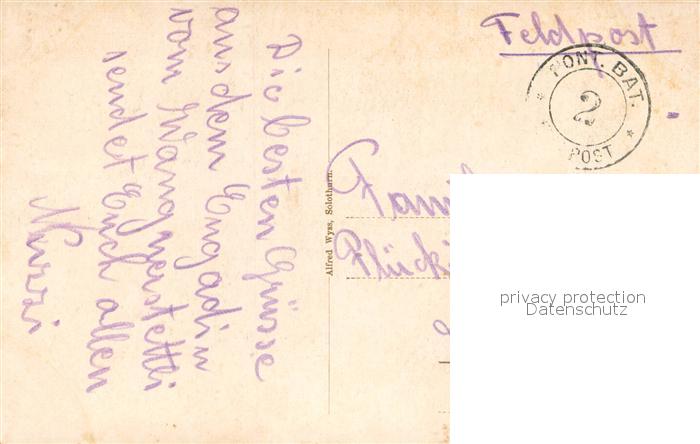 Feldpost
PONT. BAT.
2
POST
Die besten Grüsse
aus dem Engadin
vom
sendet Euch allen
Alfred Wyss, Solothurn.
privacy protection
Datenschutz